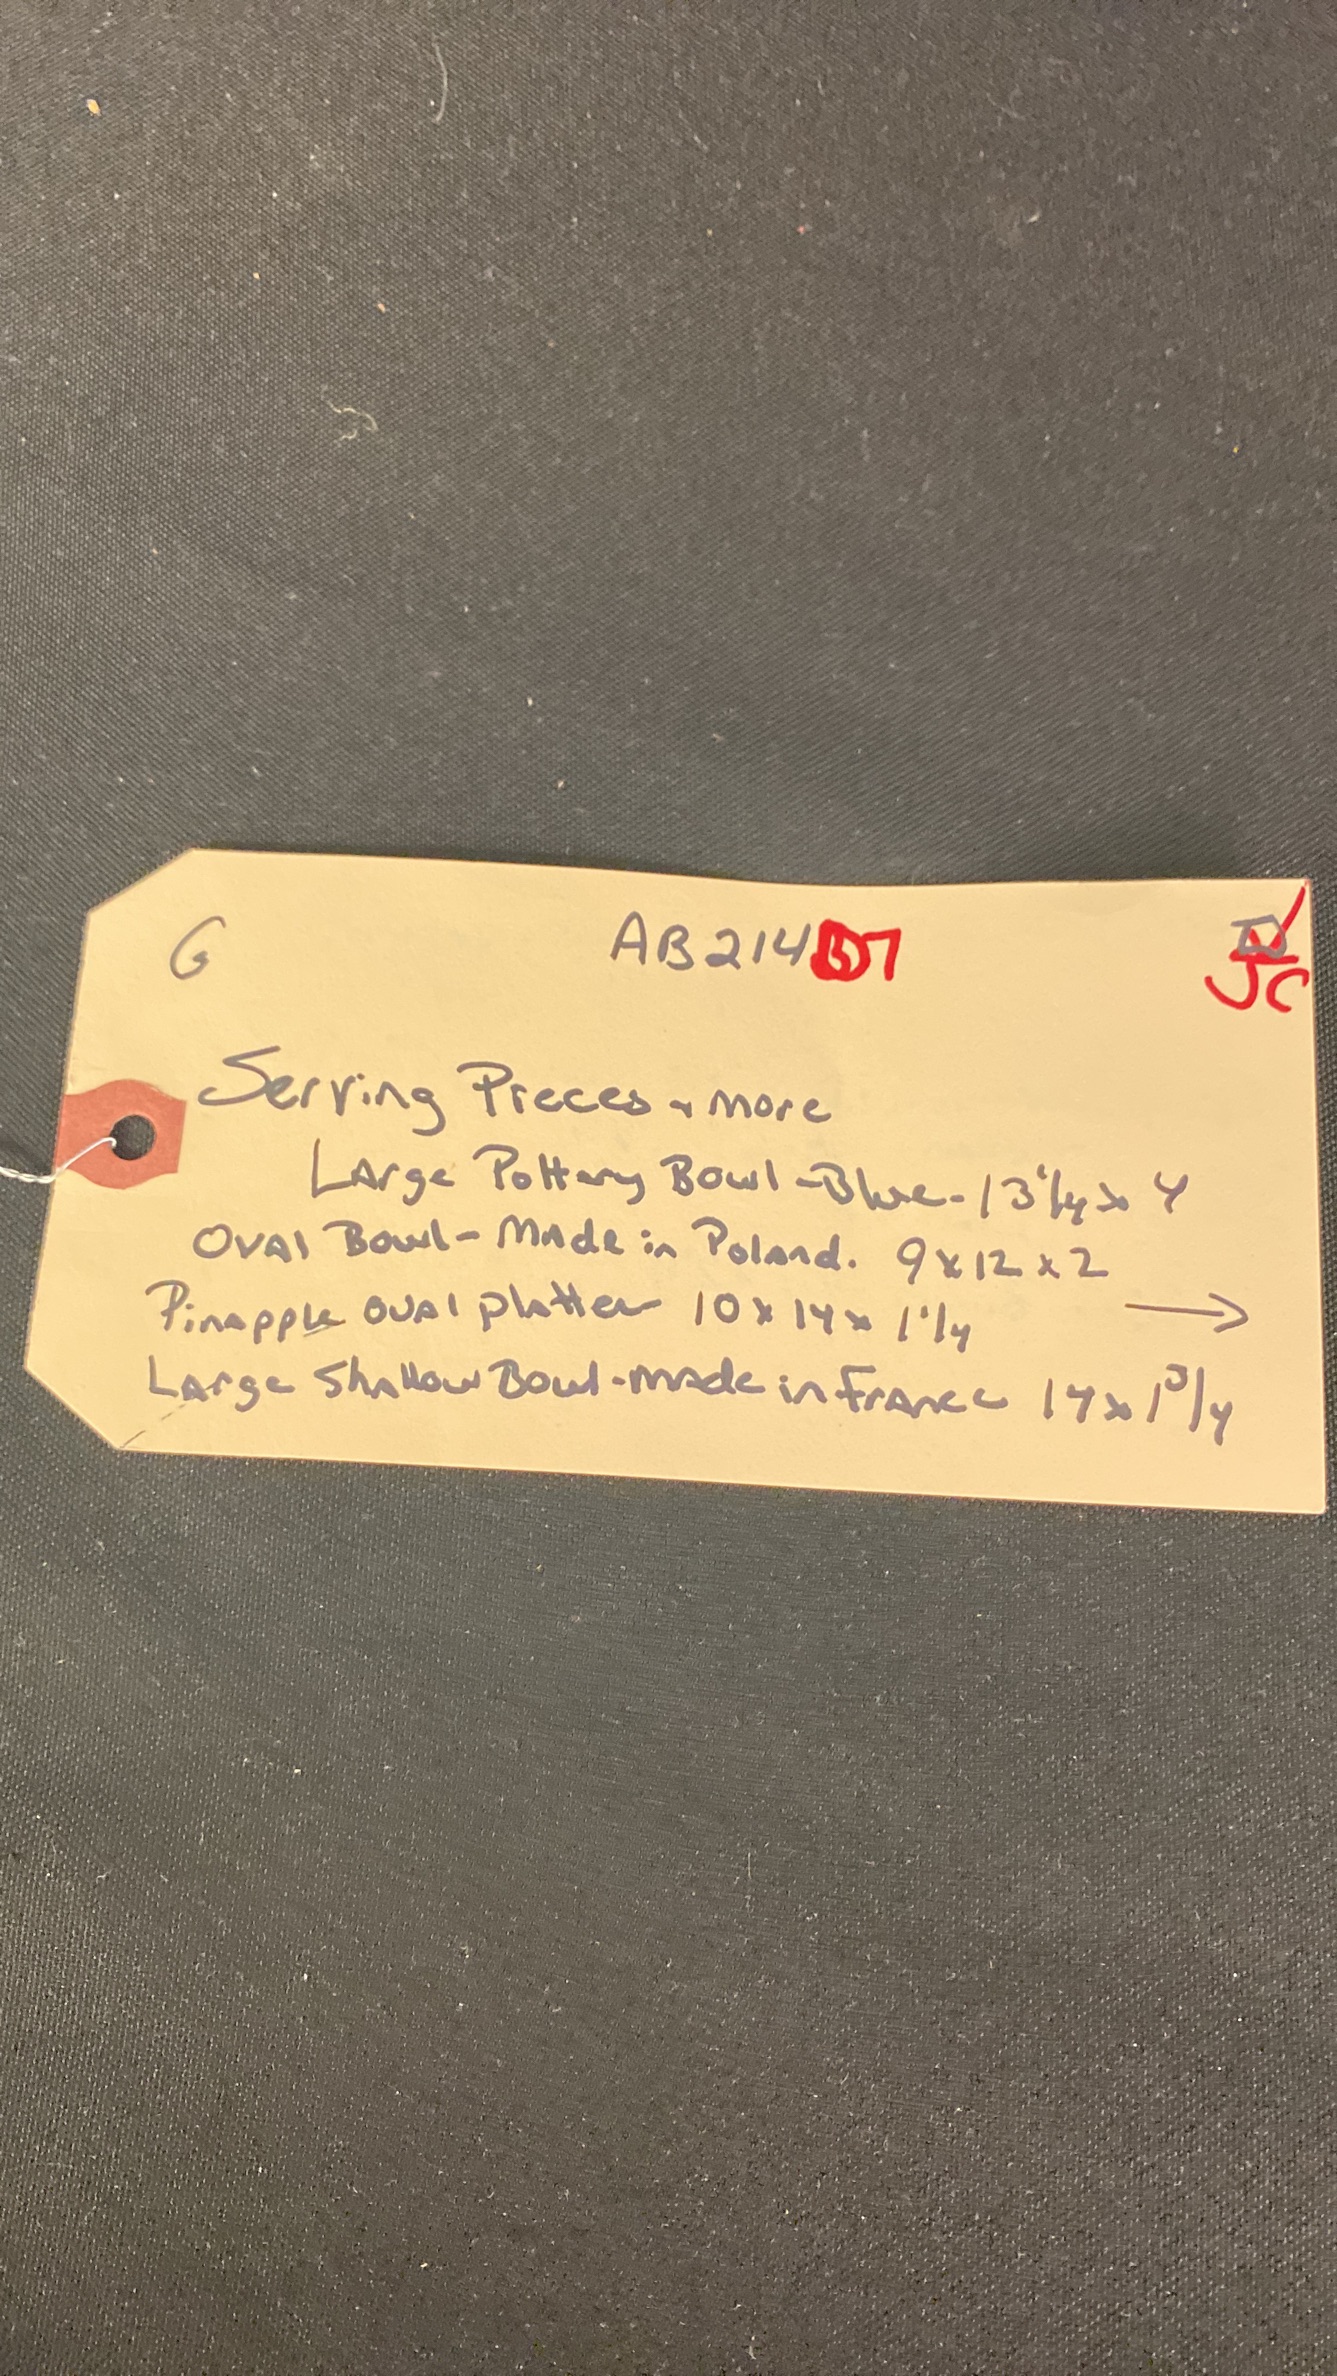 G AB2147
JC
Serving Pieces & more
Large Pottery Bowl - Blue - 13 1/4 x 4
Oval Bowl - Made in Poland. 9 x 12 x 2
Pinapple oval platter 10 x 14 x 1 1/4 →
Large Shallow Bowl - made in France 14 x 1 3/4